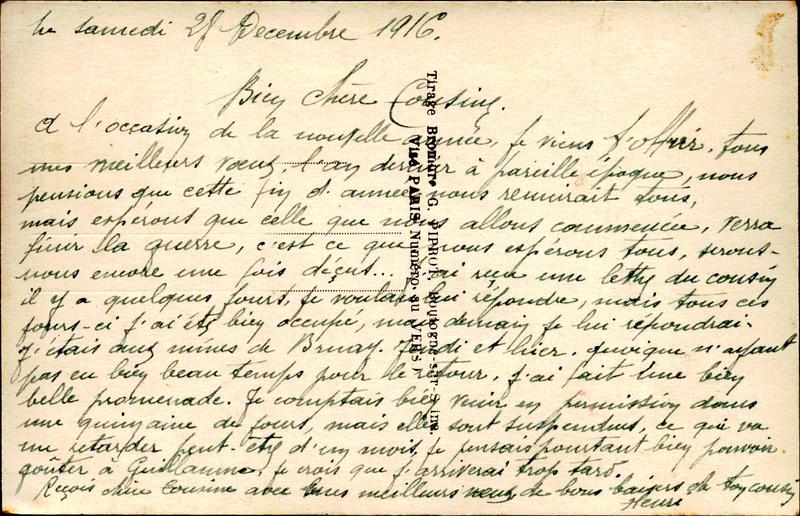 Le samedi 28 Decembre 1916.
Bien chère Cousine.
A l'occasion de la nouvelle année, je viens t'offrir, tous
mes meilleurs vœux, l'an dernier à pareille époque, nous
pensions que cette fin d'année nous reunirait tous,
mais espérons que celle que nous allons commencée, verra
finir la guerre, c'est ce que nous espérons tous, serons-
nous encore une fois déçus... j'ai reçu une lettre du cousin
il y a quelques jours, je voulais lui répondre, mais tous ces
jours-ci j'ai été bien occupé, mais demain je lui répondrai.
J'étais aux mines de Bruay. Jeudi et hier, quoique n'ayant
pas eu bien beau temps pour le retour, j'ai fait une bien
belle promenade. Je comptais bien venir en permission dans
une quinzaine de jours, mais elles sont suspendues, ce qui va
me retarder peut-être d'un mois, je pensais pourtant bien pouvoir
goûter à Guillaume, je crois que j'arriverai trop tard.
Reçois chère Cousine avec mes meilleurs vœux de bons baisers de ton cousin
Henri
Tirage Bromure G. PIPROT, Boulogne-sur-S. imp.
Visé PARIS Numéro au VERSO